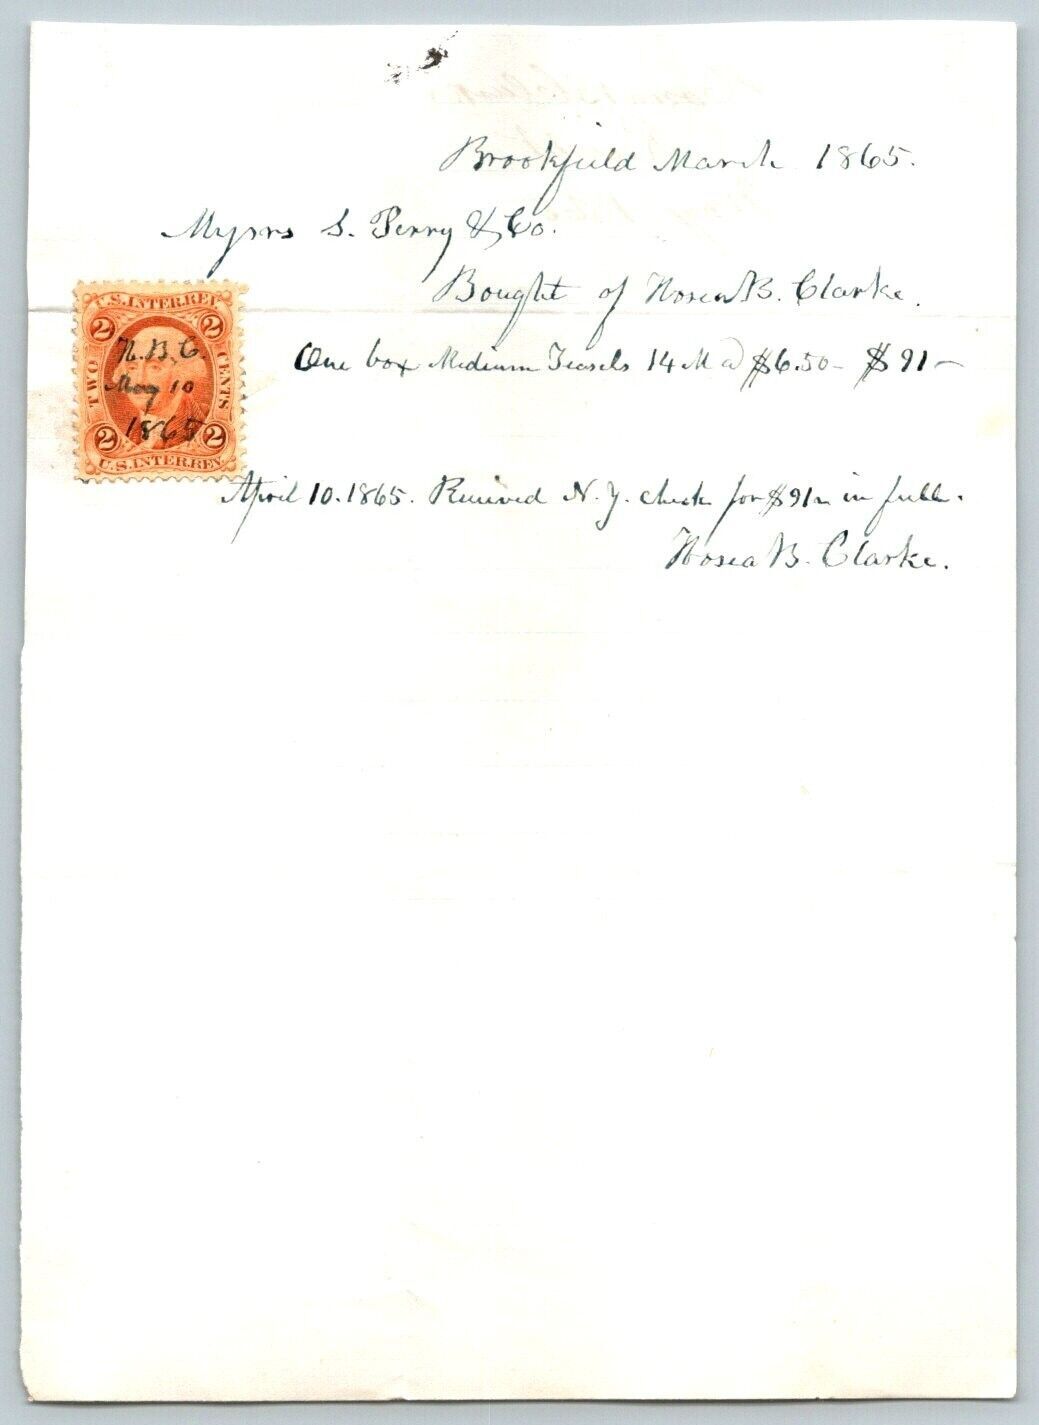 Brookfield March 1865.
Myssrs S. Perry & Co.
Bought of Hosea B. Clarke.
One box Medium Teasels 14 M @ $6.50 – $91 –
U.S. INTER. REV.
2 2
TWO CENTS
H. B. C.
May 10
1865
2 2
U.S. INTER. REV.
April 10. 1865. Received N. Y. check for $91 in full.
Hosea B. Clarke.